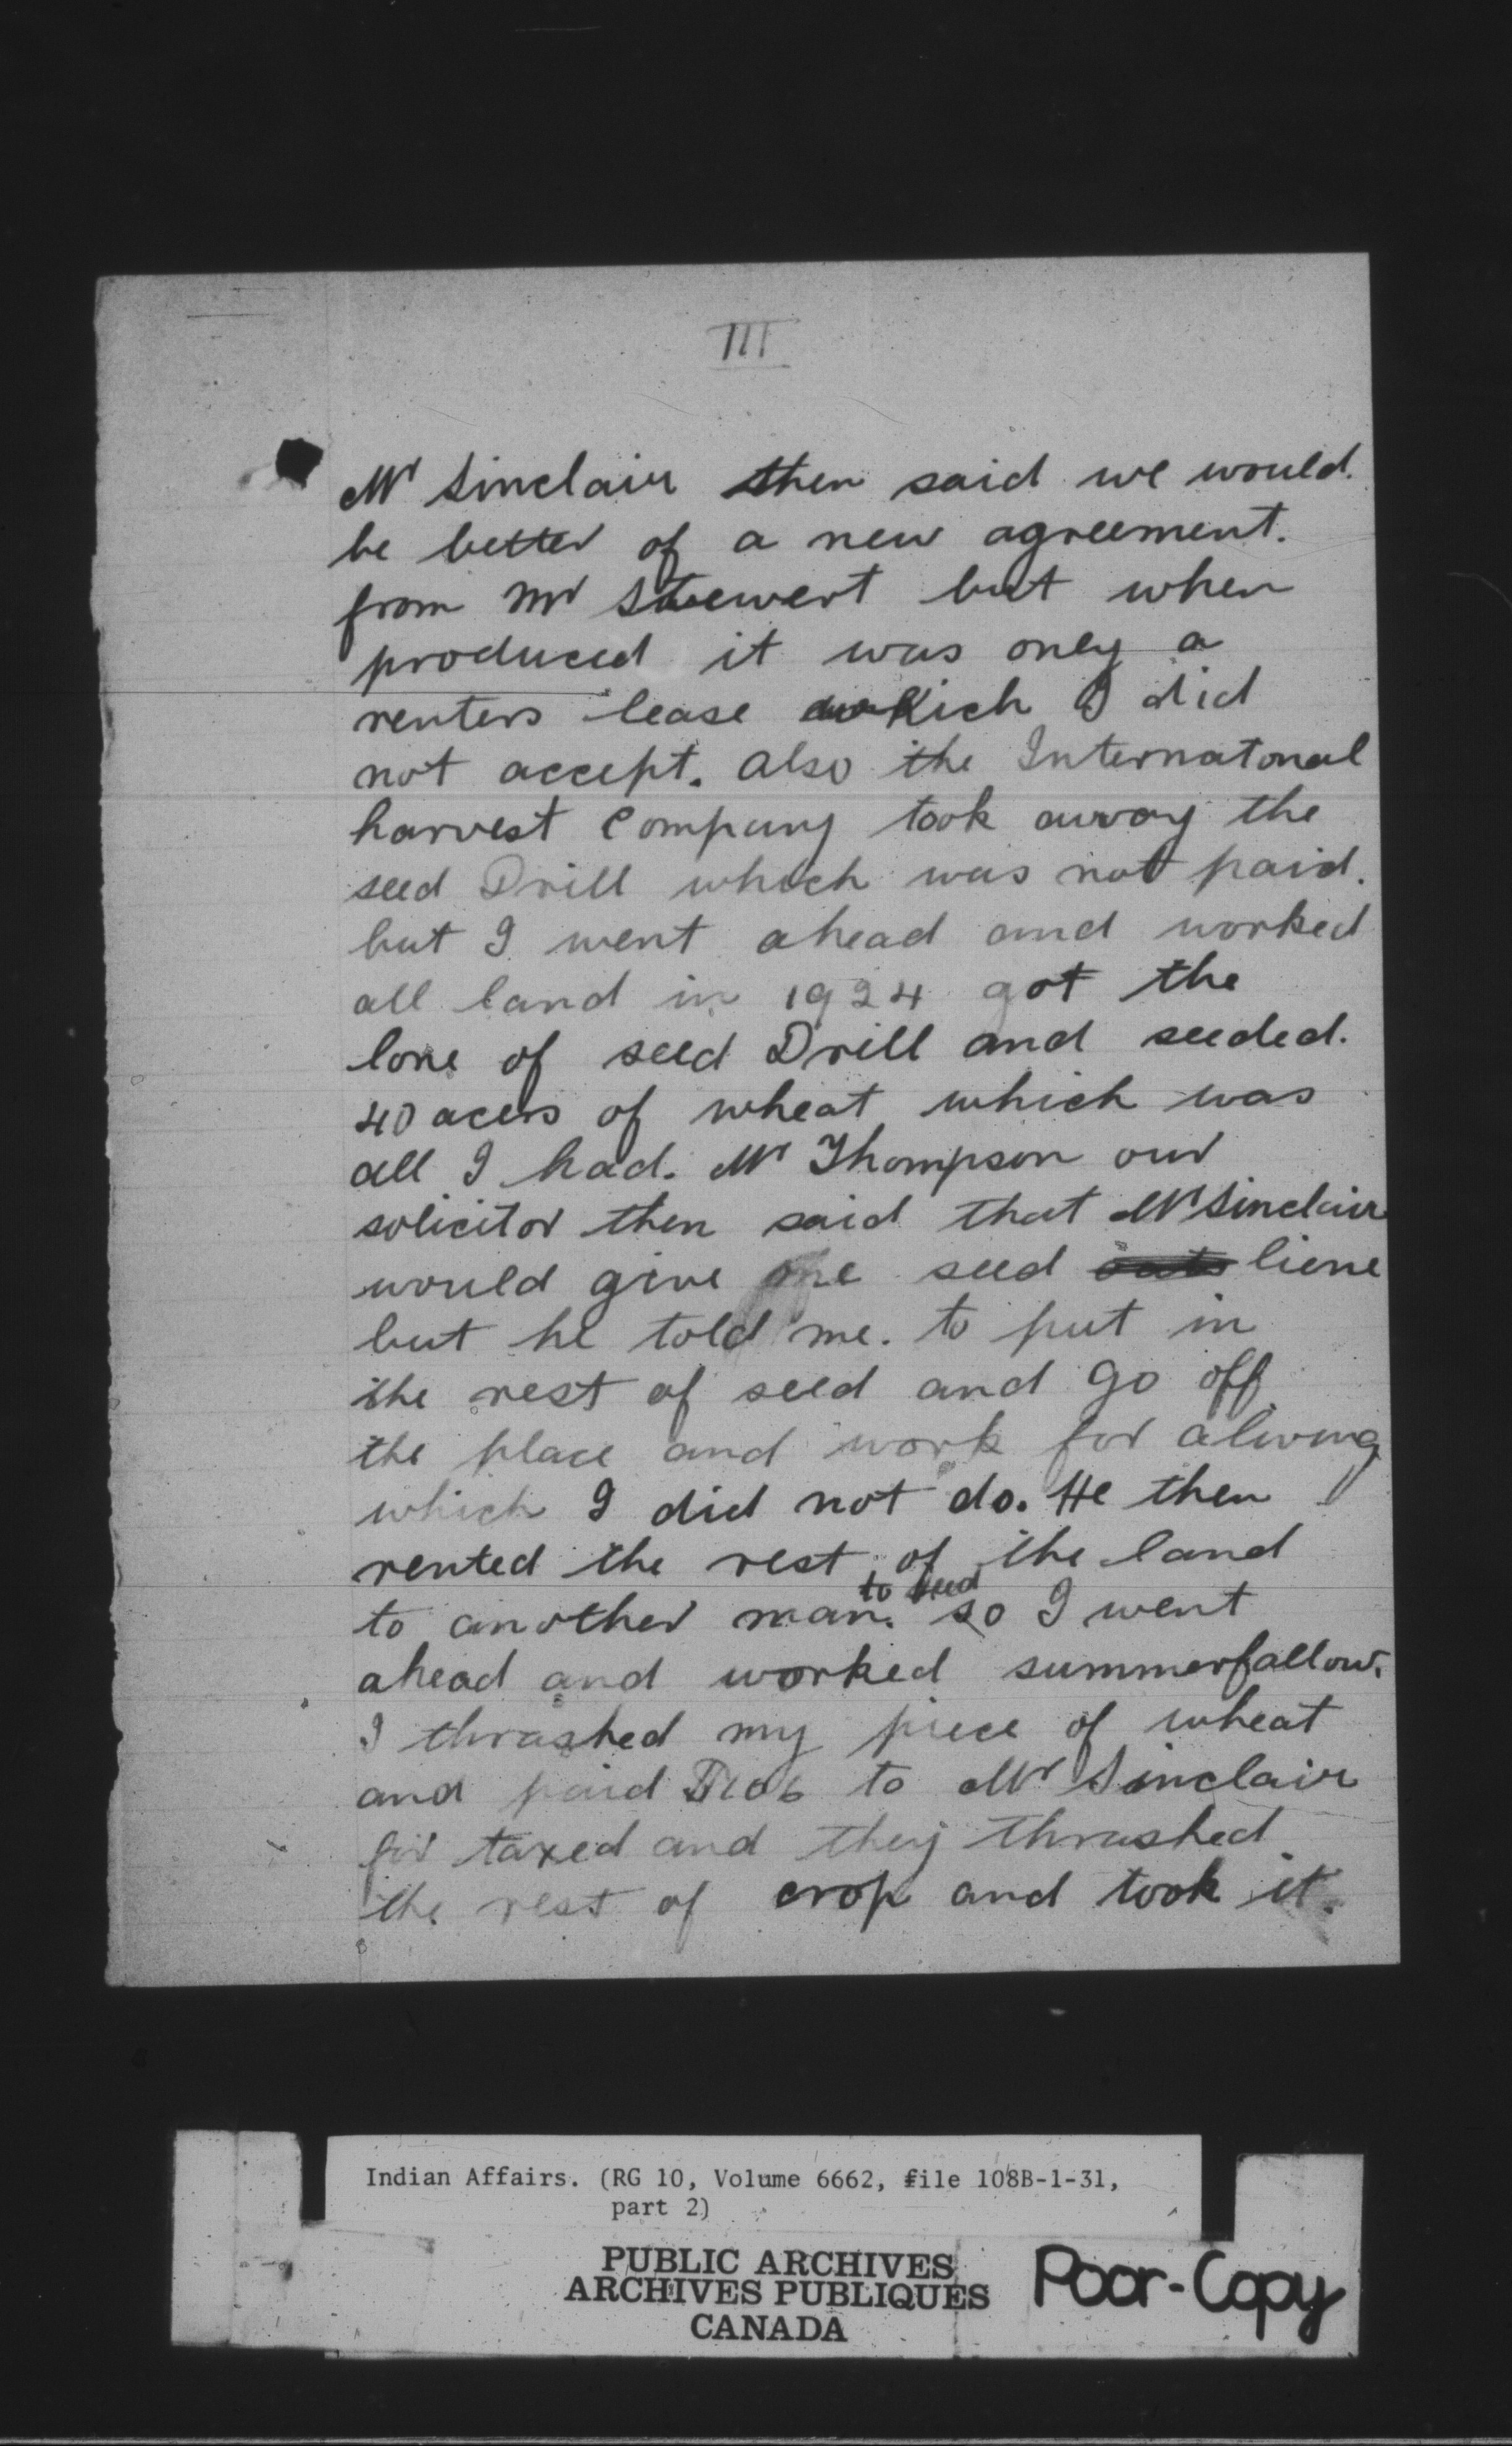 III
Mr Sinclair then said we would.
be better of a new agreement.
from Mr Stewert but when
produced it was only a
renters lease which I did
not accept. also the Internatonal
harvest Company took away the
seed Drill which was not paid.
but I went ahead and worked
all land in 1924 got the
lone of seed Drill and seeded.
40 acers of wheat which was
all I had. Mr Thompson our
solicitor then said that Mr Sinclair
would give me seed liene
but he told me. to put in
the rest of seed and go off
the place and work for a living
which I did not do. He then
rented the rest of the land
to seed
to another man. so I went
ahead and worked summerfallow.
I thrashed my piece of wheat
and paid to Mr Sinclair
for taxed and they thrashed
the rest of crop and took it.
Indian Affairs. (RG 10, Volume 6662, file 108B-1-31,
part 2)
PUBLIC ARCHIVES
ARCHIVES PUBLIQUES
CANADA
Poor-Copy